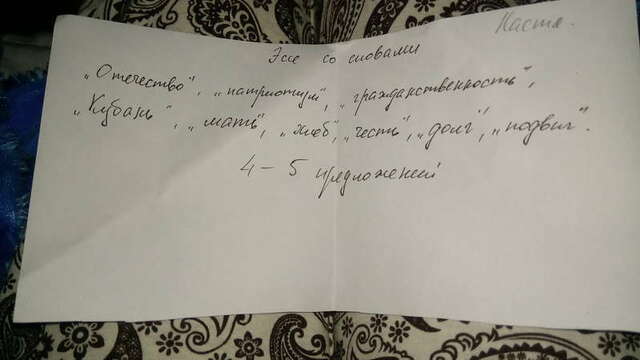 Настя.
Эссе со словами
„Отечество", „патриотизм", „гражданственность",
„Кубань", „мать", „хлеб", „честь", „долг", „подвиг".
4 – 5 предложений